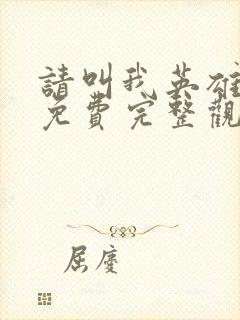 請叫我英雄
免費完整觀
屈慶